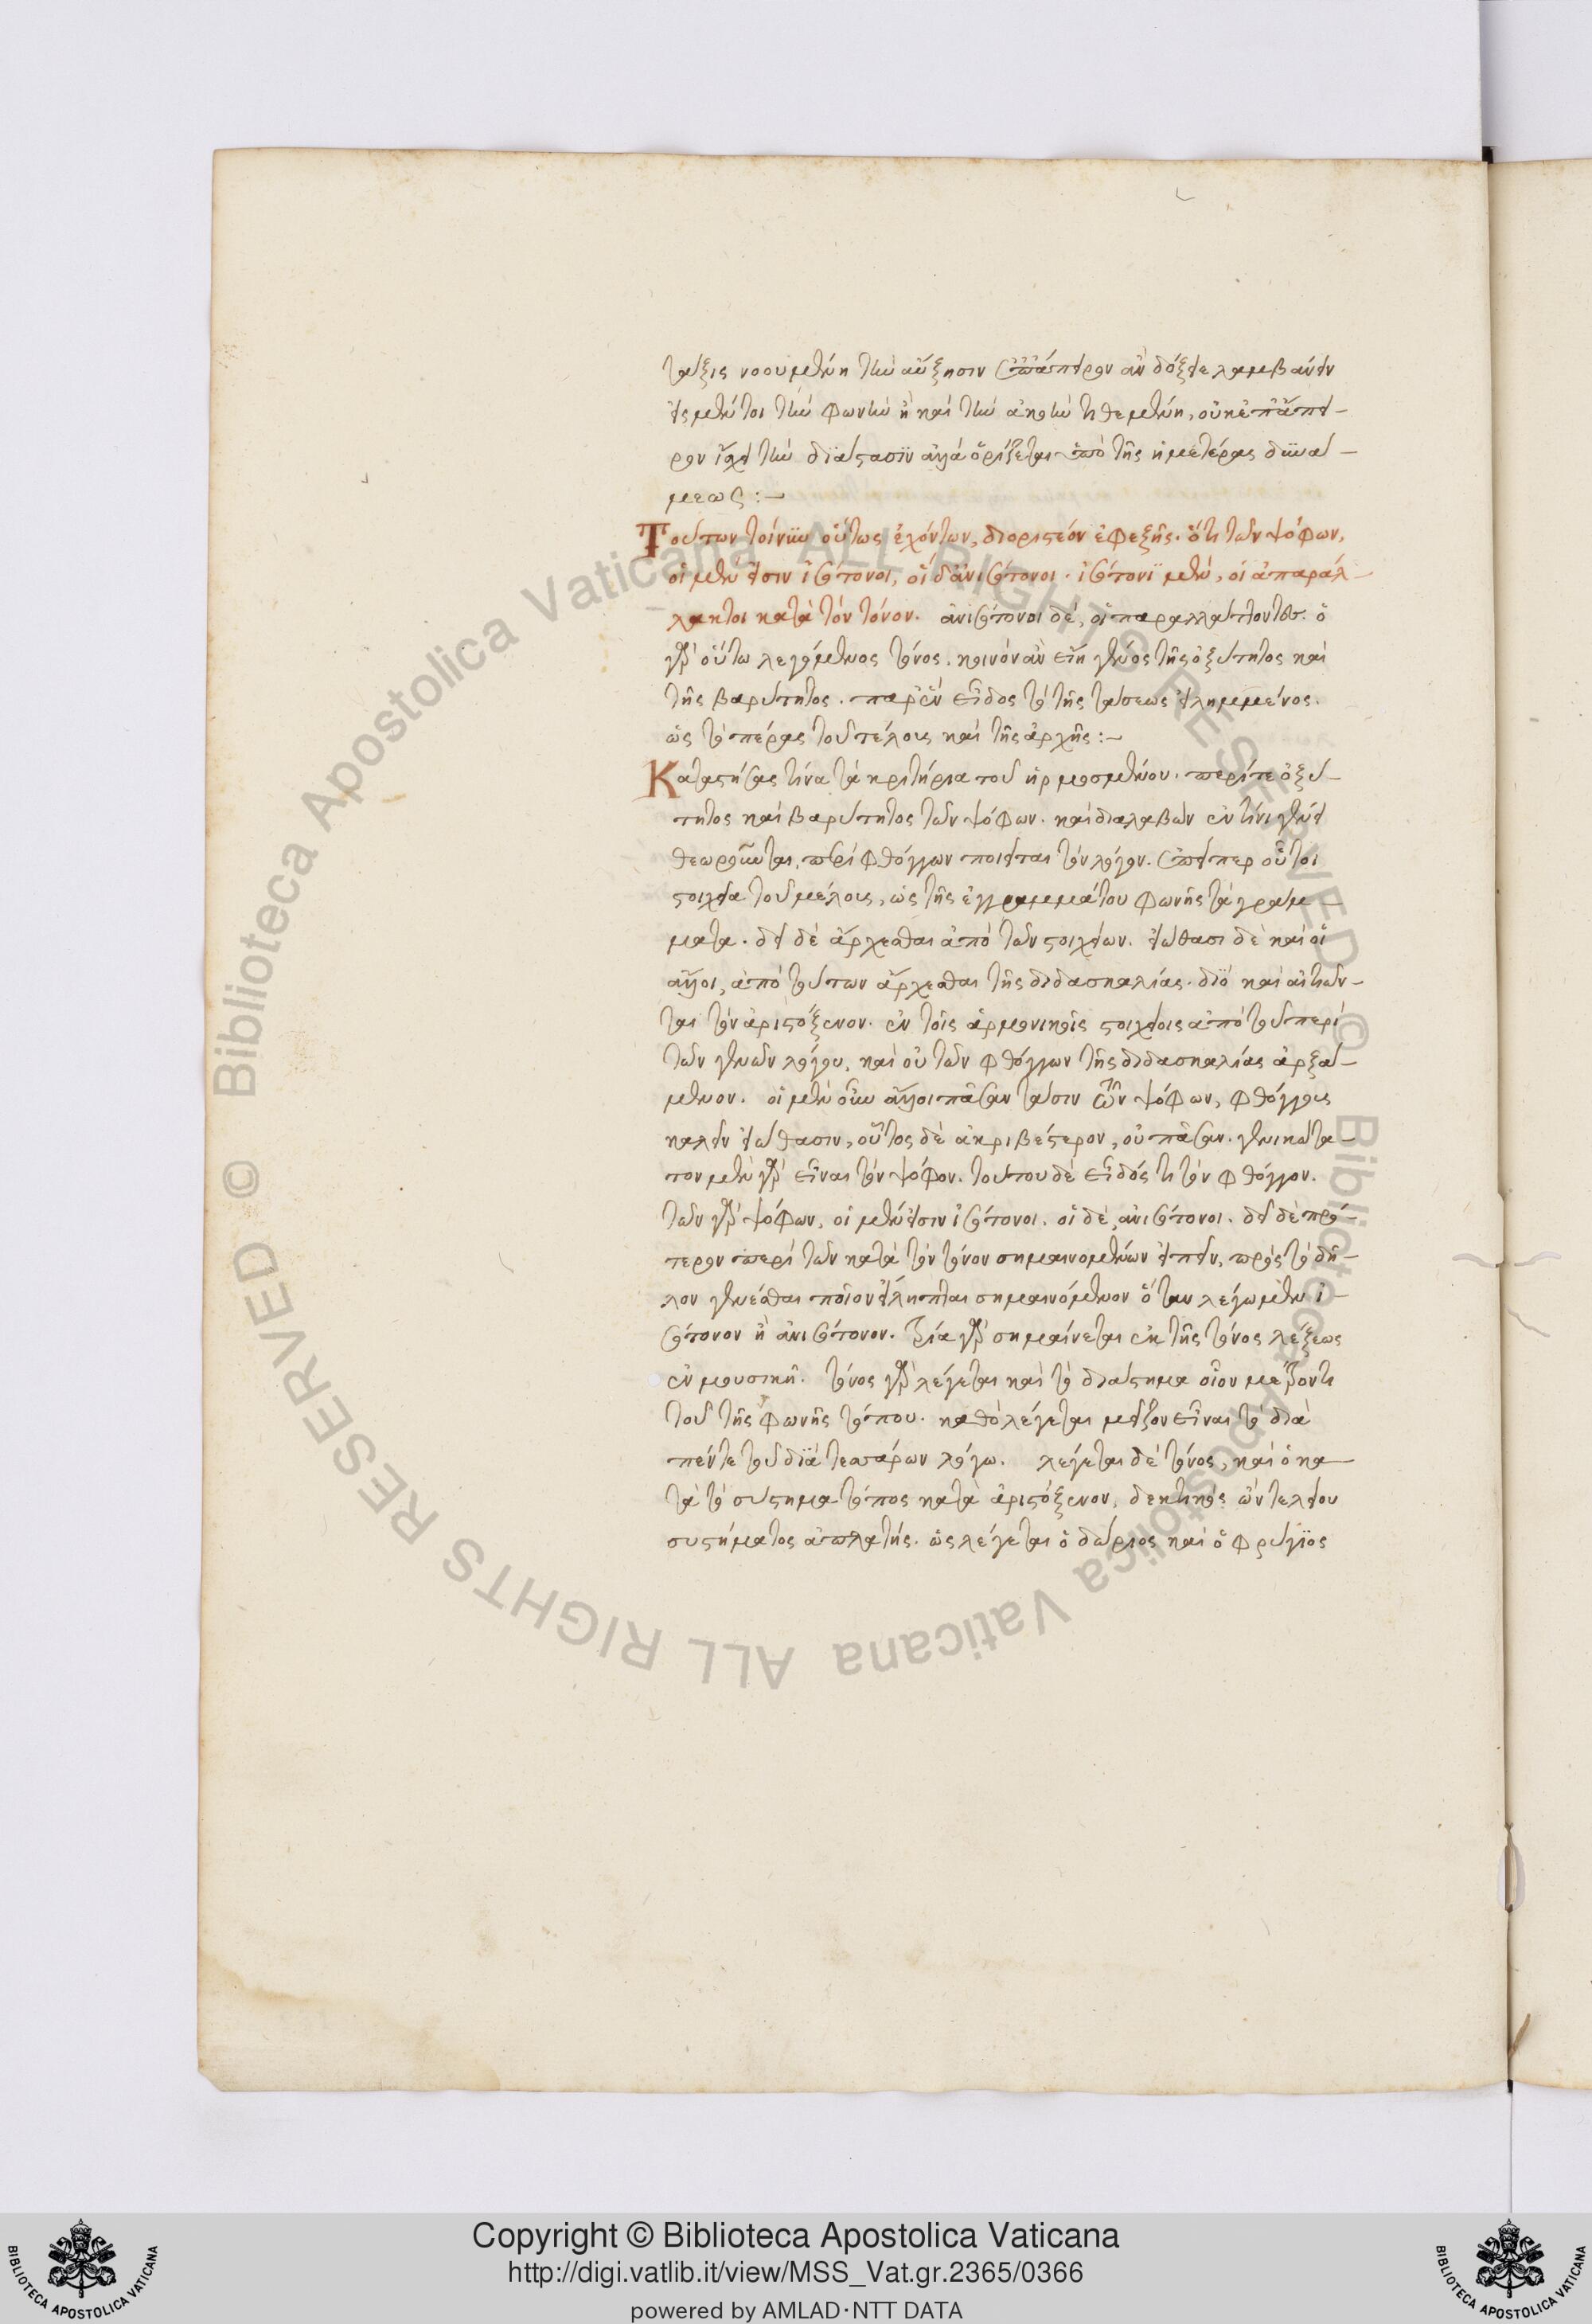 ταξις νοουμένη τὴν αὔξησιν ἐπάπειρον ἂν δόξειε λαμβάνειν
εἰς μέντοι τὴν φωνὴν ἢ καὶ τὴν ἀκοὴν τιθεμένη, οὐκ ἐπάπει-
ρον ἴσχει τὴν διάστασιν ἀλλὰ ὁρίζεται ὑπὸ τῆς ἡμετέρας δυνά-
μεως :-
Τούτων τοίνυν οὕτως ἐχόντων, διοριστέον ἐφεξῆς. ὅτι τῶν ψόφων,
οἱ μὲν εἰσιν ἰσότονοι, οἱ δ' ἀνισότονοι. ἰσότονοι μὲν, οἱ ἀπαράλ-
λακτοι κατὰ τὸν τόνον. ἀνισότονοι δέ, οἱ παραλλάττοντες. ὁ
γὰρ οὕτω λεγόμενος τόνος. κοινὸν ἂν εἴη γένος τῆς ὀξύτητος καὶ
τῆς βαρύτητος. παρ' ἓν εἶδος τὸ τῆς τάσεως εἰλημμένος.
ὡς τὸ πέρας τοῦ τέλους καὶ τῆς ἀρχῆς :-
Καταστήσας τίνα τὰ κριτήρια τοῦ ἡρμοσμένου. περί τε ὀξύ-
τητος καὶ βαρύτητος τῶν ψόφων. καὶ διαλαβὼν ἐν τίνι γένει
θεωροῦνται, περὶ φθόγγων ποιεῖται τὸν λόγον. ἐπείπερ οὗτοι
στοιχεῖα τοῦ μέλους, ὡς τῆς ἐγγραμμάτου φωνῆς τὰ γράμ-
ματα. δεῖ δὲ ἄρχεσθαι ἀπὸ τῶν στοιχείων. εἰώθασι δὲ καὶ οἱ
ἄλλοι, ἀπὸ τούτων ἄρχεσθαι τῆς διδασκαλίας. διὸ καὶ αἰτιῶν-
ται τὸν ἀριστόξενον. ἐν τοῖς ἁρμονικοῖς στοιχείοις ἀπὸ τοῦ περὶ
τῶν γενῶν λόγου, καὶ οὐ τῶν φθόγγων τῆς διδασκαλίας ἀρξά-
μενον. οἱ μὲν οὖν ἄλλοι πᾶσαν τάσιν τῶν ψόφων, φθόγγους
καλεῖν εἰώθασιν, οὗτος δὲ ἀκριβέστερον, οὐ πᾶσαν. γενικώτα-
τον μὲν γὰρ εἶναι τὸν ψόφον. τούτου δὲ εἶδός τι τὸν φθόγγον.
τῶν γὰρ ψόφων, οἱ μὲν εἰσιν ἰσότονοι. οἱ δέ, ἀνισότονοι. δεῖ δὲ πρό-
τερον περὶ τῶν κατὰ τὸν τόνον σημαινομένων εἰπεῖν, πρὸς τὸ δῆ-
λον γενέσθαι ποῖον εἴληπται σημαινόμενον ὅταν λέγωμεν ἰ-
σότονον ἢ ἀνισότονον. τρία γὰρ σημαίνεται ἐκ τῆς τόνος λέξεως
ἐν μουσικῇ. τόνος γὰρ λέγεται καὶ τὸ διάστημα οἷον μείζον τι
τοῦ τῆς φωνῆς τόπου. καθὸ λέγεται μεῖζον εἶναι τὸ διὰ
πέντε τοῦ διὰ τεσσάρων λόγω. λέγεται δὲ τόνος, καὶ ὁ κα-
τὰ τὸ σύστημα τόπος κατὰ ἀριστόξενον, δεκτικὸς ὢν τελείου
συστήματος ἀπλατής. ὡς λέγεται ὁ δώριος καὶ ὁ φρύγιος
Copyright © Biblioteca Apostolica Vaticana
http://digi.vatlib.it/view/MSS_Vat.gr.2365/0366
powered by AMLAD·NTT DATA